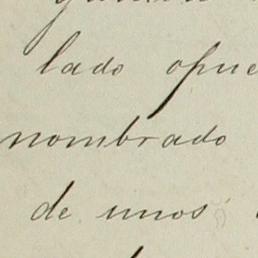 lado opue
nombrado
de unos